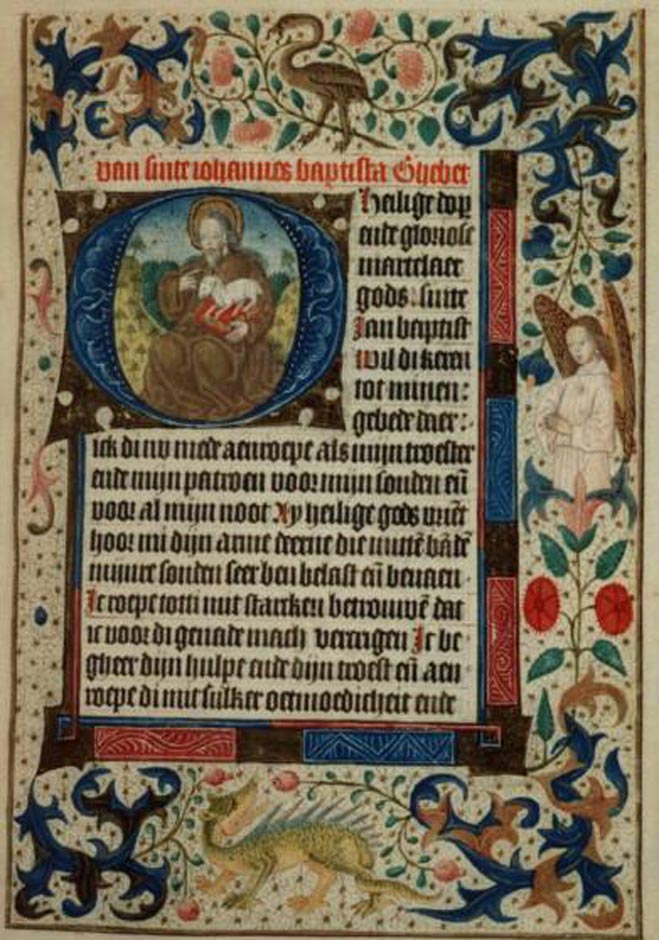 van sinte iohannes baptista Ghebet
O Heilige dop
ende gloriose
martelaer
gods: sinte
Ian baptist
wil di keren
tot minen:
gebede daer:
ick di nv mede aenroepe als mijn troester
ende mijn patroen voor mijn sonden eñ
voor al mijn noot Ay heilige gods vrient
hoor mi dijn arme deerne die mittē bādē
mijnre sonden seer ben belast eñ benaen
Ic roepe totti mit starcken betrouwē dat
ic voor di genade mach vercrigen Ic be
gheer dijn hulpe ende dijn troest eñ aen
roepe di mit sulker oetmoedicheit ende